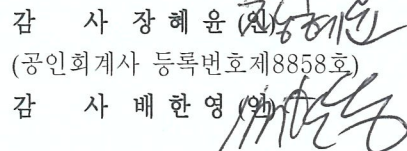 감 사 장 혜 윤 (인)
(공인회계사 등록번호제8858호)
감 사 배 한 영 (인)